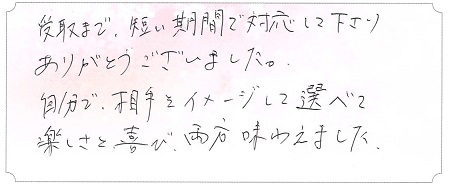 受取まで、短い期間で対応して下さり
ありがとうございました。
自分で、相手をイメージして選べて
楽しさと喜び、両者味わえました、